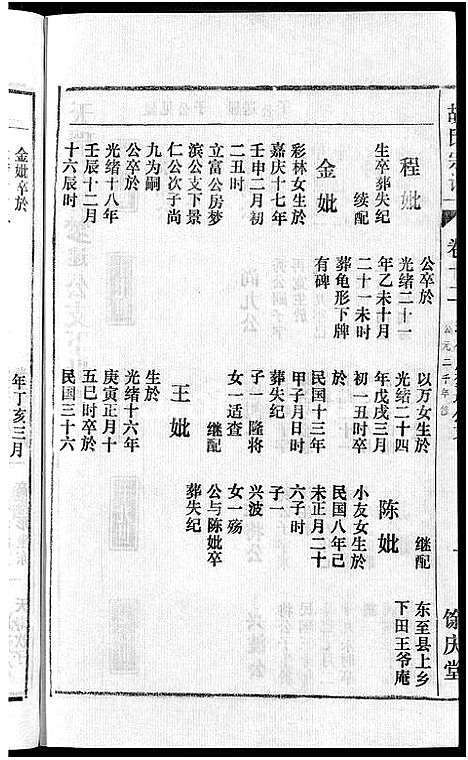 卷十二
馀庆堂
程妣
生卒葬失纪
续配
金妣
彩林女生於
嘉庆十七年
壬申二月初
二丑时
立富公房梦
滨公支下景
仁公次子尚
九为嗣
公卒於
光绪十八年
壬辰十二月
十六辰时
公卒於
光绪二十一
年乙未十月
二十一未时
葬龟形下牌
有碑
以万女生於
光绪二十四
年戊戌三月
初一丑时卒
於
民国十三年
甲子月日时
葬失纪
子一 隆将
女一适查
继配
王妣
生於
光绪十六年
庚寅正月十
五巳时卒於
民国三十六
继配
陈妣
小友女生於
民国八年己
未正月二十
六子时
子一
兴波
女一殇
公与陈妣卒
葬失纪
东至县上乡
下田王爷庵
金妣卒於
年丁亥三月